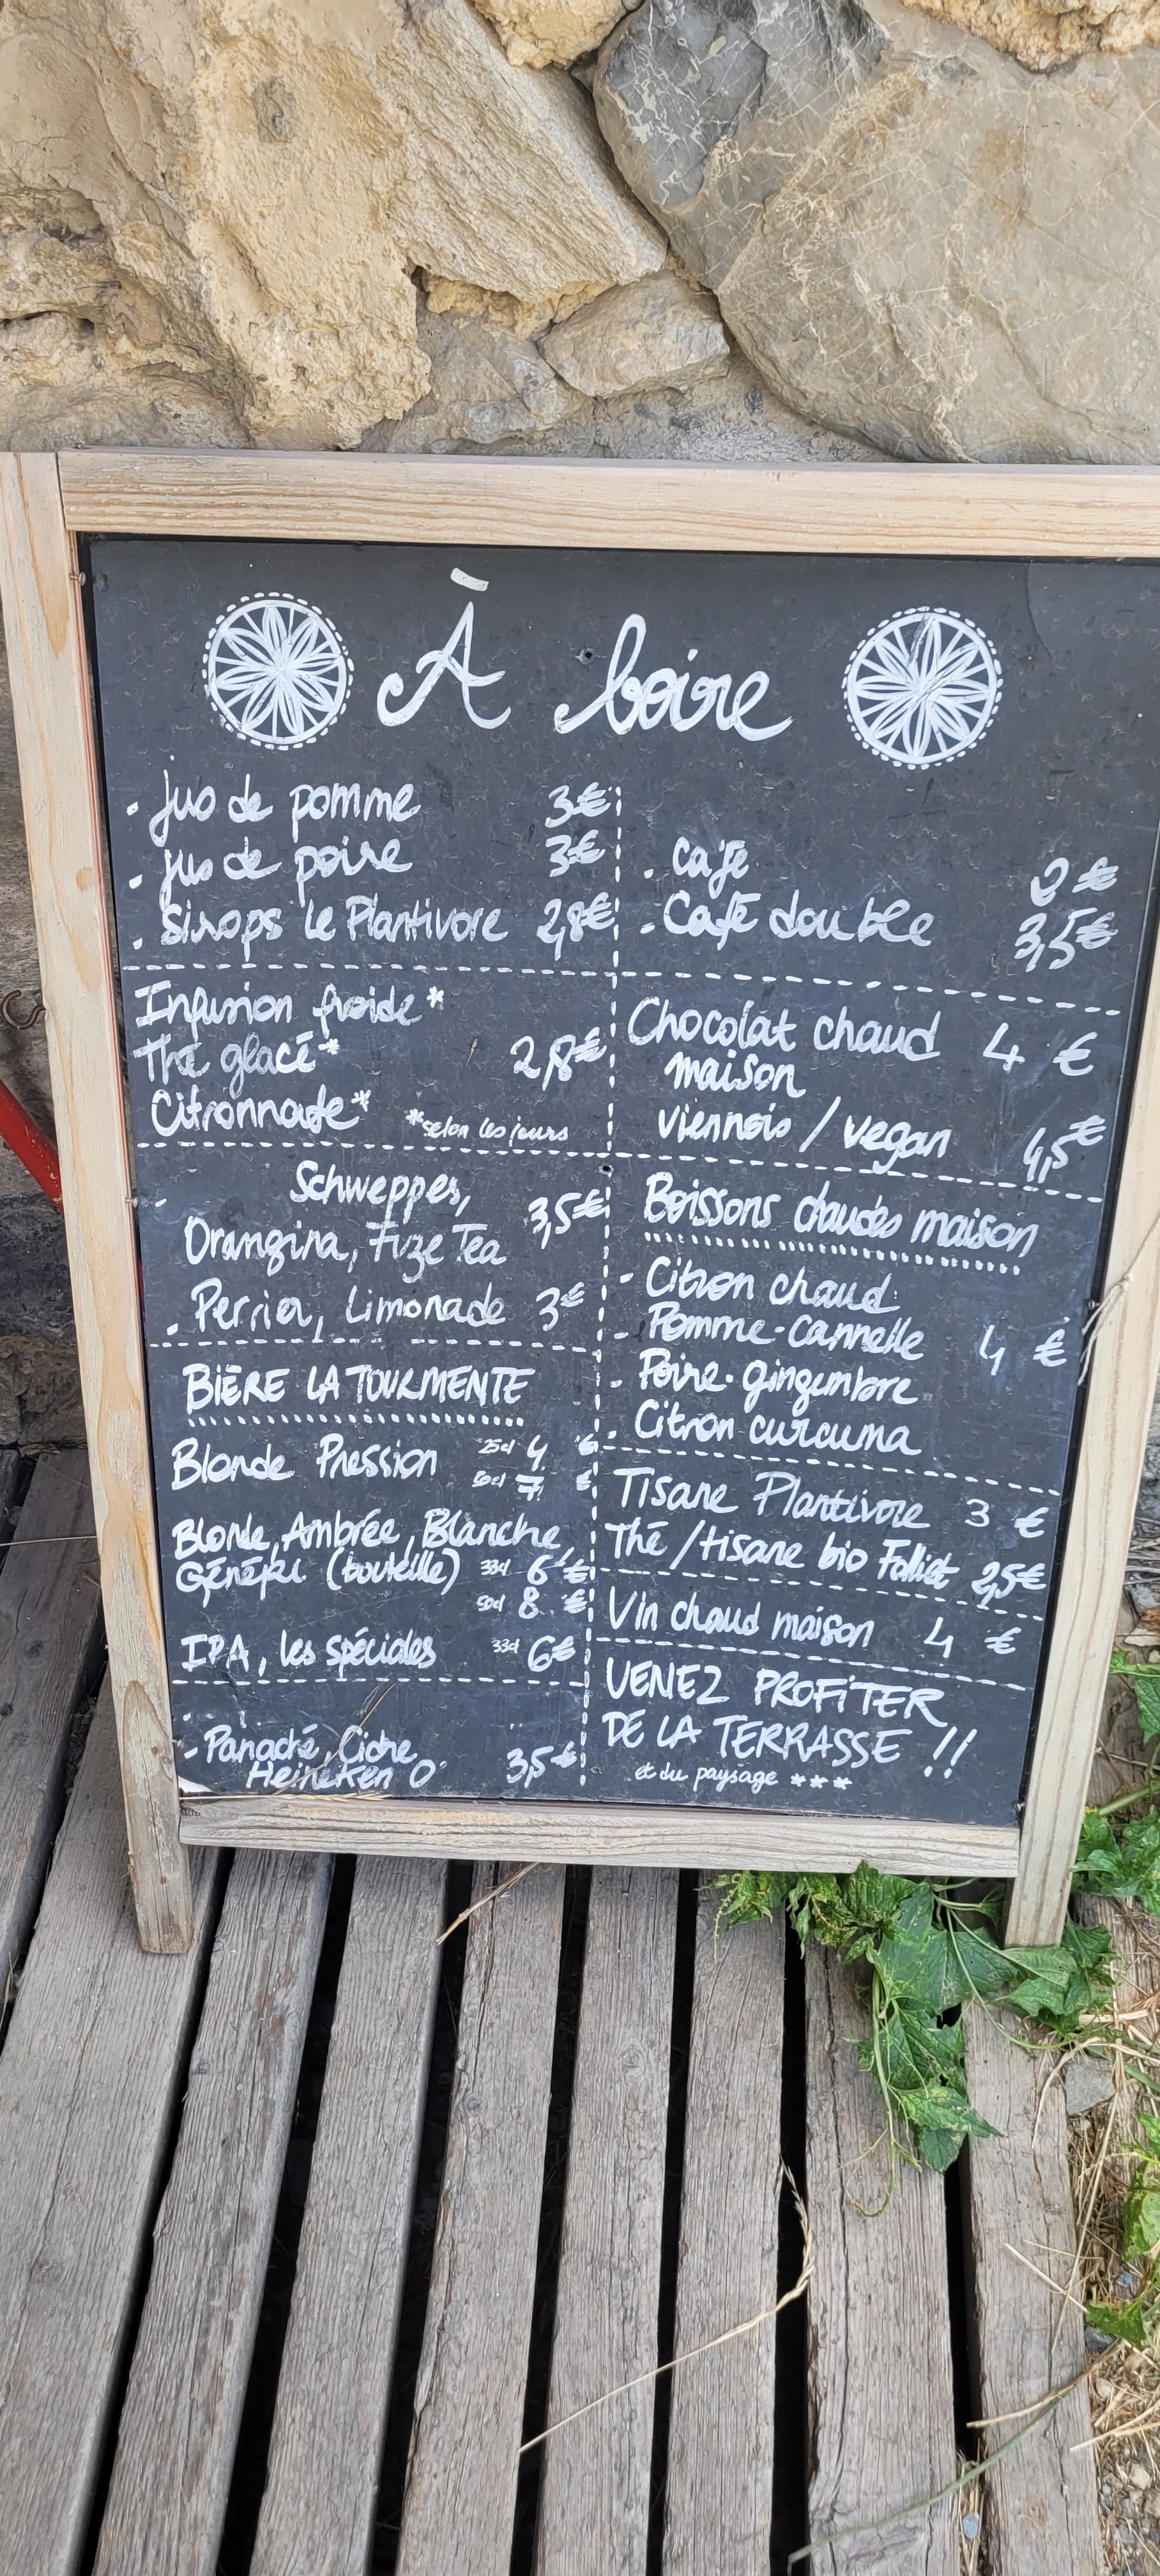 À boire
. jus de pomme 3€
. jus de poire 3€
. Sirops Le Plantivore 2,8€
Infusion froide*
Thé glacé* 2,8€
Citronnade* *selon les jours
. Schweppes,
Orangina, Fuze Tea 3,5€
. Perrier, Limonade 3€
BIÈRE LA TOURMENTE
Blonde Pression 25cl 4 €
50cl 7 €
Blonde, Ambrée, Blanche,
Génépi (bouteille) 33cl 6 €
50cl 8 €
IPA, les spéciales 33cl 6€
- Panaché, Cidre,
Heineken 0° 3,5€
. Café €
. Café double 3,5€
Chocolat chaud 4 €
maison
viennois / vegan 4,5€
Boissons chaudes maison
- Citron chaud
- Pomme-cannelle 4 €
- Poire-gingembre
. Citron curcuma
Tisane Plantivore 3 €
Thé / tisane bio Folliet 2,5€
Vin chaud maison 4 €
VENEZ PROFITER
DE LA TERRASSE !!
et du paysage ***